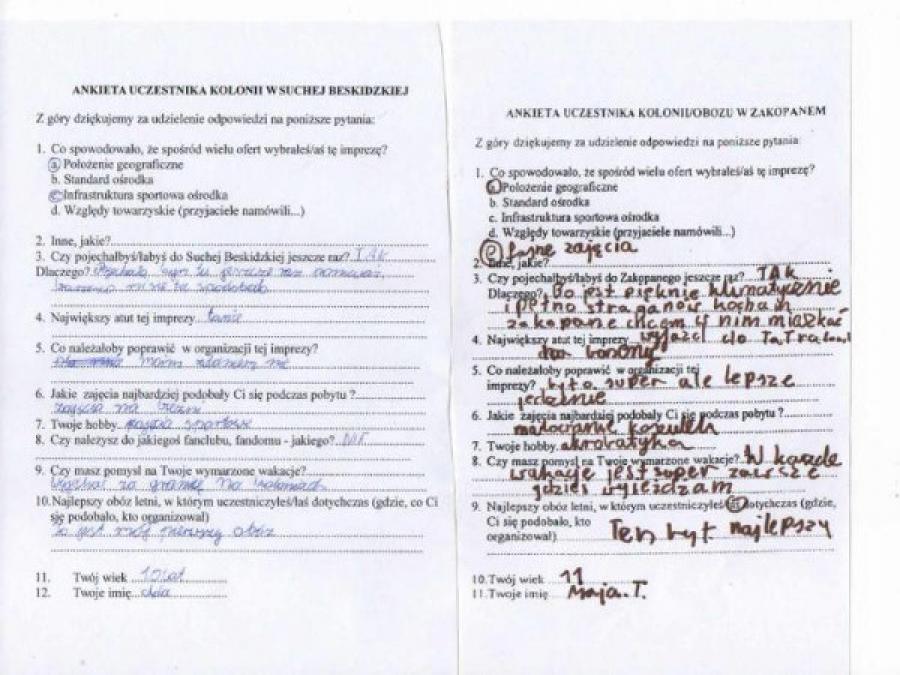 ANKIETA UCZESTNIKA KOLONII W SUCHEJ BESKIDZKIEJ
Z góry dziękujemy za udzielenie odpowiedzi na poniższe pytania:
1. Co spowodowało, że spośród wielu ofert wybrałeś/aś tę imprezę?
a Położenie geograficzne
b. Standard ośrodka
c Infrastruktura sportowa ośrodka
d. Względy towarzyskie (przyjaciele namówili...)
2. Inne, jakie?
3. Czy pojechałbyś/łabyś do Suchej Beskidzkiej jeszcze raz? TAK
Dlaczego?
4. Największy atut tej imprezy
5. Co należałoby poprawić w organizacji tej imprezy?
moim zdaniem nic
6. Jakie zajęcia najbardziej podobały Ci się podczas pobytu ?
zajęcia na
7. Twoje hobby
8. Czy należysz do jakiegoś fanclubu, fandomu - jakiego? NIE
9. Czy masz pomysł na Twoje wymarzone wakacje?
za granicę na
10. Najlepszy obóz letni, w którym uczestniczyłeś/łaś dotychczas (gdzie, co Ci
się podobało, kto organizował)
to jest mój pierwszy obóz
11. Twój wiek
12. Twoje imię
ANKIETA UCZESTNIKA KOLONII/OBOZU W ZAKOPANEM
Z góry dziękujemy za udzielenie odpowiedzi na poniższe pytania:
1. Co spowodowało, że spośród wielu ofert wybrałeś/aś tę imprezę?
a Położenie geograficzne
b. Standard ośrodka
c. Infrastruktura sportowa ośrodka
d. Względy towarzyskie (przyjaciele namówili...)
e fajne zajęcia
2. Inne, jakie?
3. Czy pojechałbyś/łabyś do Zakopanego jeszcze raz? TAK
Dlaczego? Bo jest pięknie klimatycznie
i pełno straganów kocham
zakopane chcem w nim mieszkać
4. Największy atut tej imprezy wyjazd do
5. Co należałoby poprawić w organizacji tej
imprezy? było super ale lepsze
jedzenie
6. Jakie zajęcia najbardziej podobały Ci się podczas pobytu ?
malowanie koszulek
7. Twoje hobby akrobatyka
8. Czy masz pomysł na Twoje wymarzone wakacje? W każde
wakacje jest super zawsze
gdzieś wyjeżdżam
9. Najlepszy obóz letni, w którym uczestniczyłeś/łaś dotychczas (gdzie,
Ci się podobało, kto
organizował) Ten był najlepszy
10. Twój wiek 11
11. Twoje imię Maja. T.